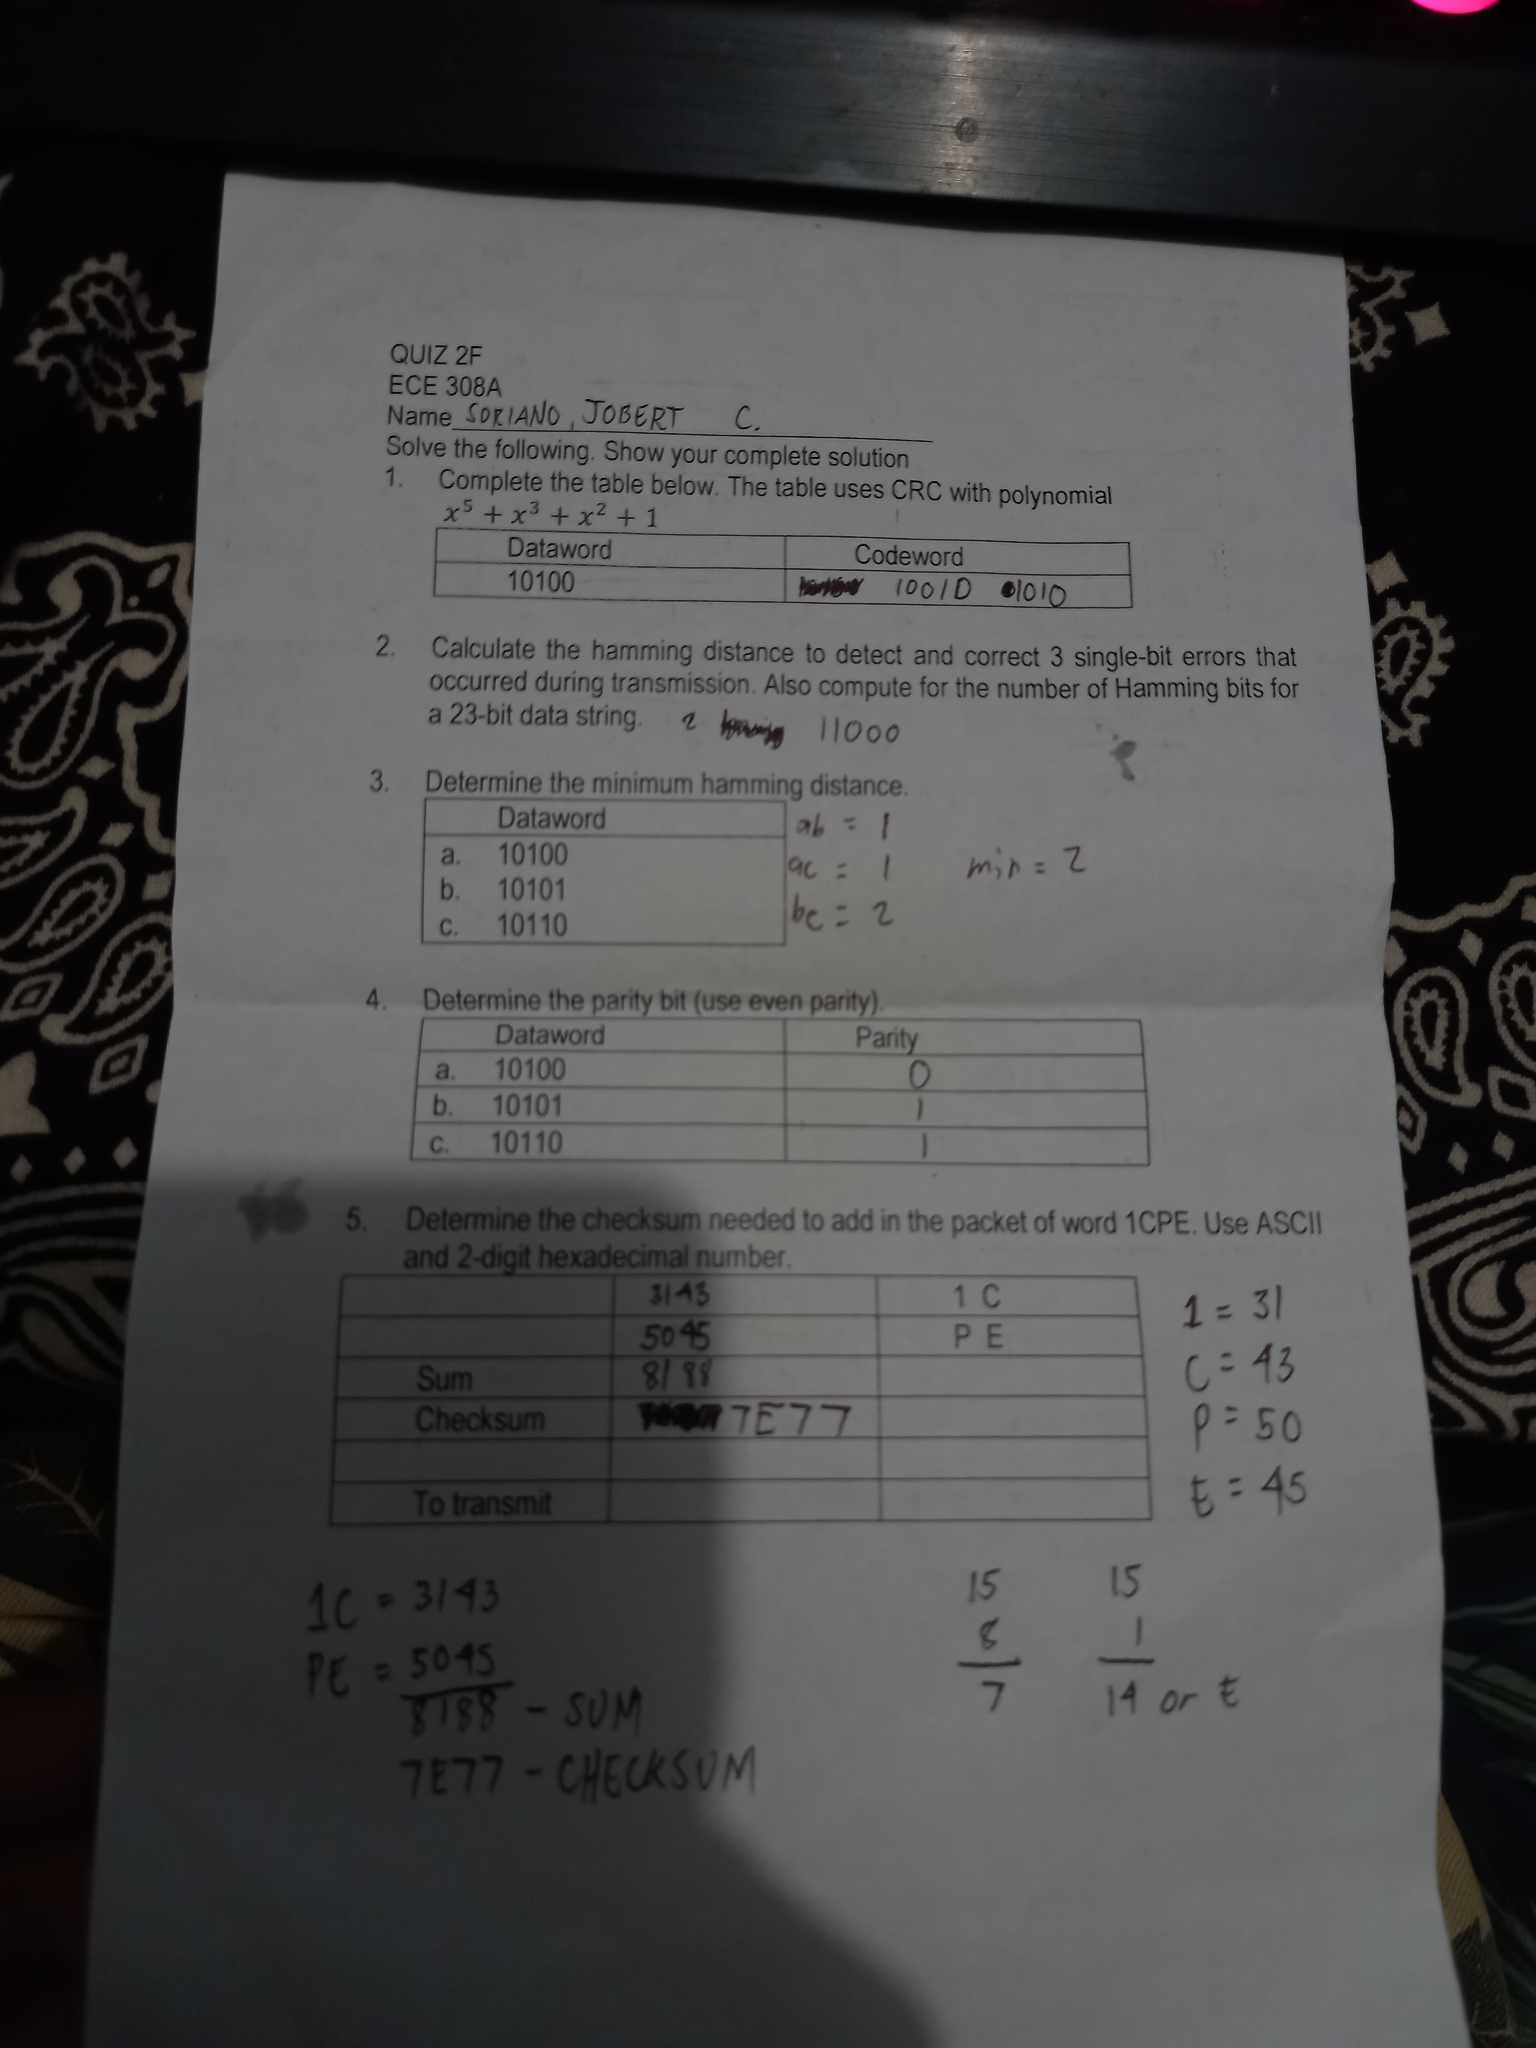 QUIZ 2F
ECE 308A
Name SORIANO, JOBERT C.
Solve the following. Show your complete solution
1. Complete the table below. The table uses CRC with polynomial
x⁵ + x³ + x² + 1
Dataword Codeword
10100 10010 01010
2. Calculate the hamming distance to detect and correct 3 single-bit errors that
occurred during transmission. Also compute for the number of Hamming bits for
a 23-bit data string. 2 11000
3. Determine the minimum hamming distance.
Dataword ab = 1
a. 10100 ac = 1 min = 2
b. 10101
c. 10110 bc = 2
4. Determine the parity bit (use even parity).
Dataword Parity
a. 10100 0
b. 10101 1
c. 10110 1
5. Determine the checksum needed to add in the packet of word 1CPE. Use ASCII
and 2-digit hexadecimal number.
3143 1 C 1 = 31
5045 P E
Sum 8188 C = 43
Checksum 7E77 P = 50
To transmit E = 45
1C = 3143 15 15
PE = 5045 8 1
8188 - SUM 7 14 or E
7E77 - CHECKSUM